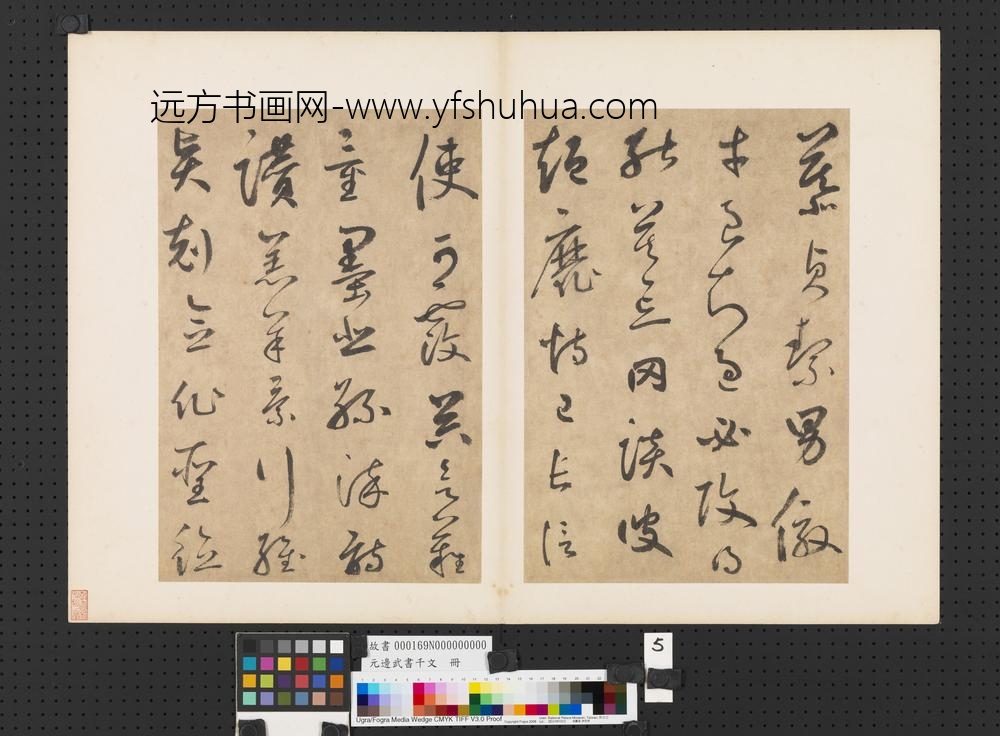 远方书画网-www.yfshuhua.com
慕貞絜男傚
才良知過必改得
能莫忘罔談彼
短靡恃己長信
使可覆器欲難
量墨悲絲染詩
讚羔羊景行維
賢剋念作聖德
故書 000169N000000000
元邊武書千文 冊
5
Ugra/Fogra Media Wedge CMYK TIFF V3.0 Proof